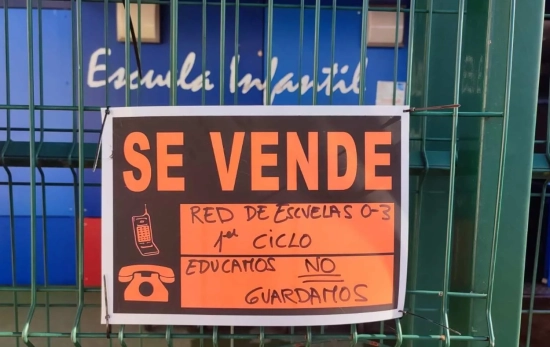 Escuela Infantil
SE VENDE
RED DE ESCUELAS 0-3
1er CICLO
EDUCAMOS NO
GUARDAMOS